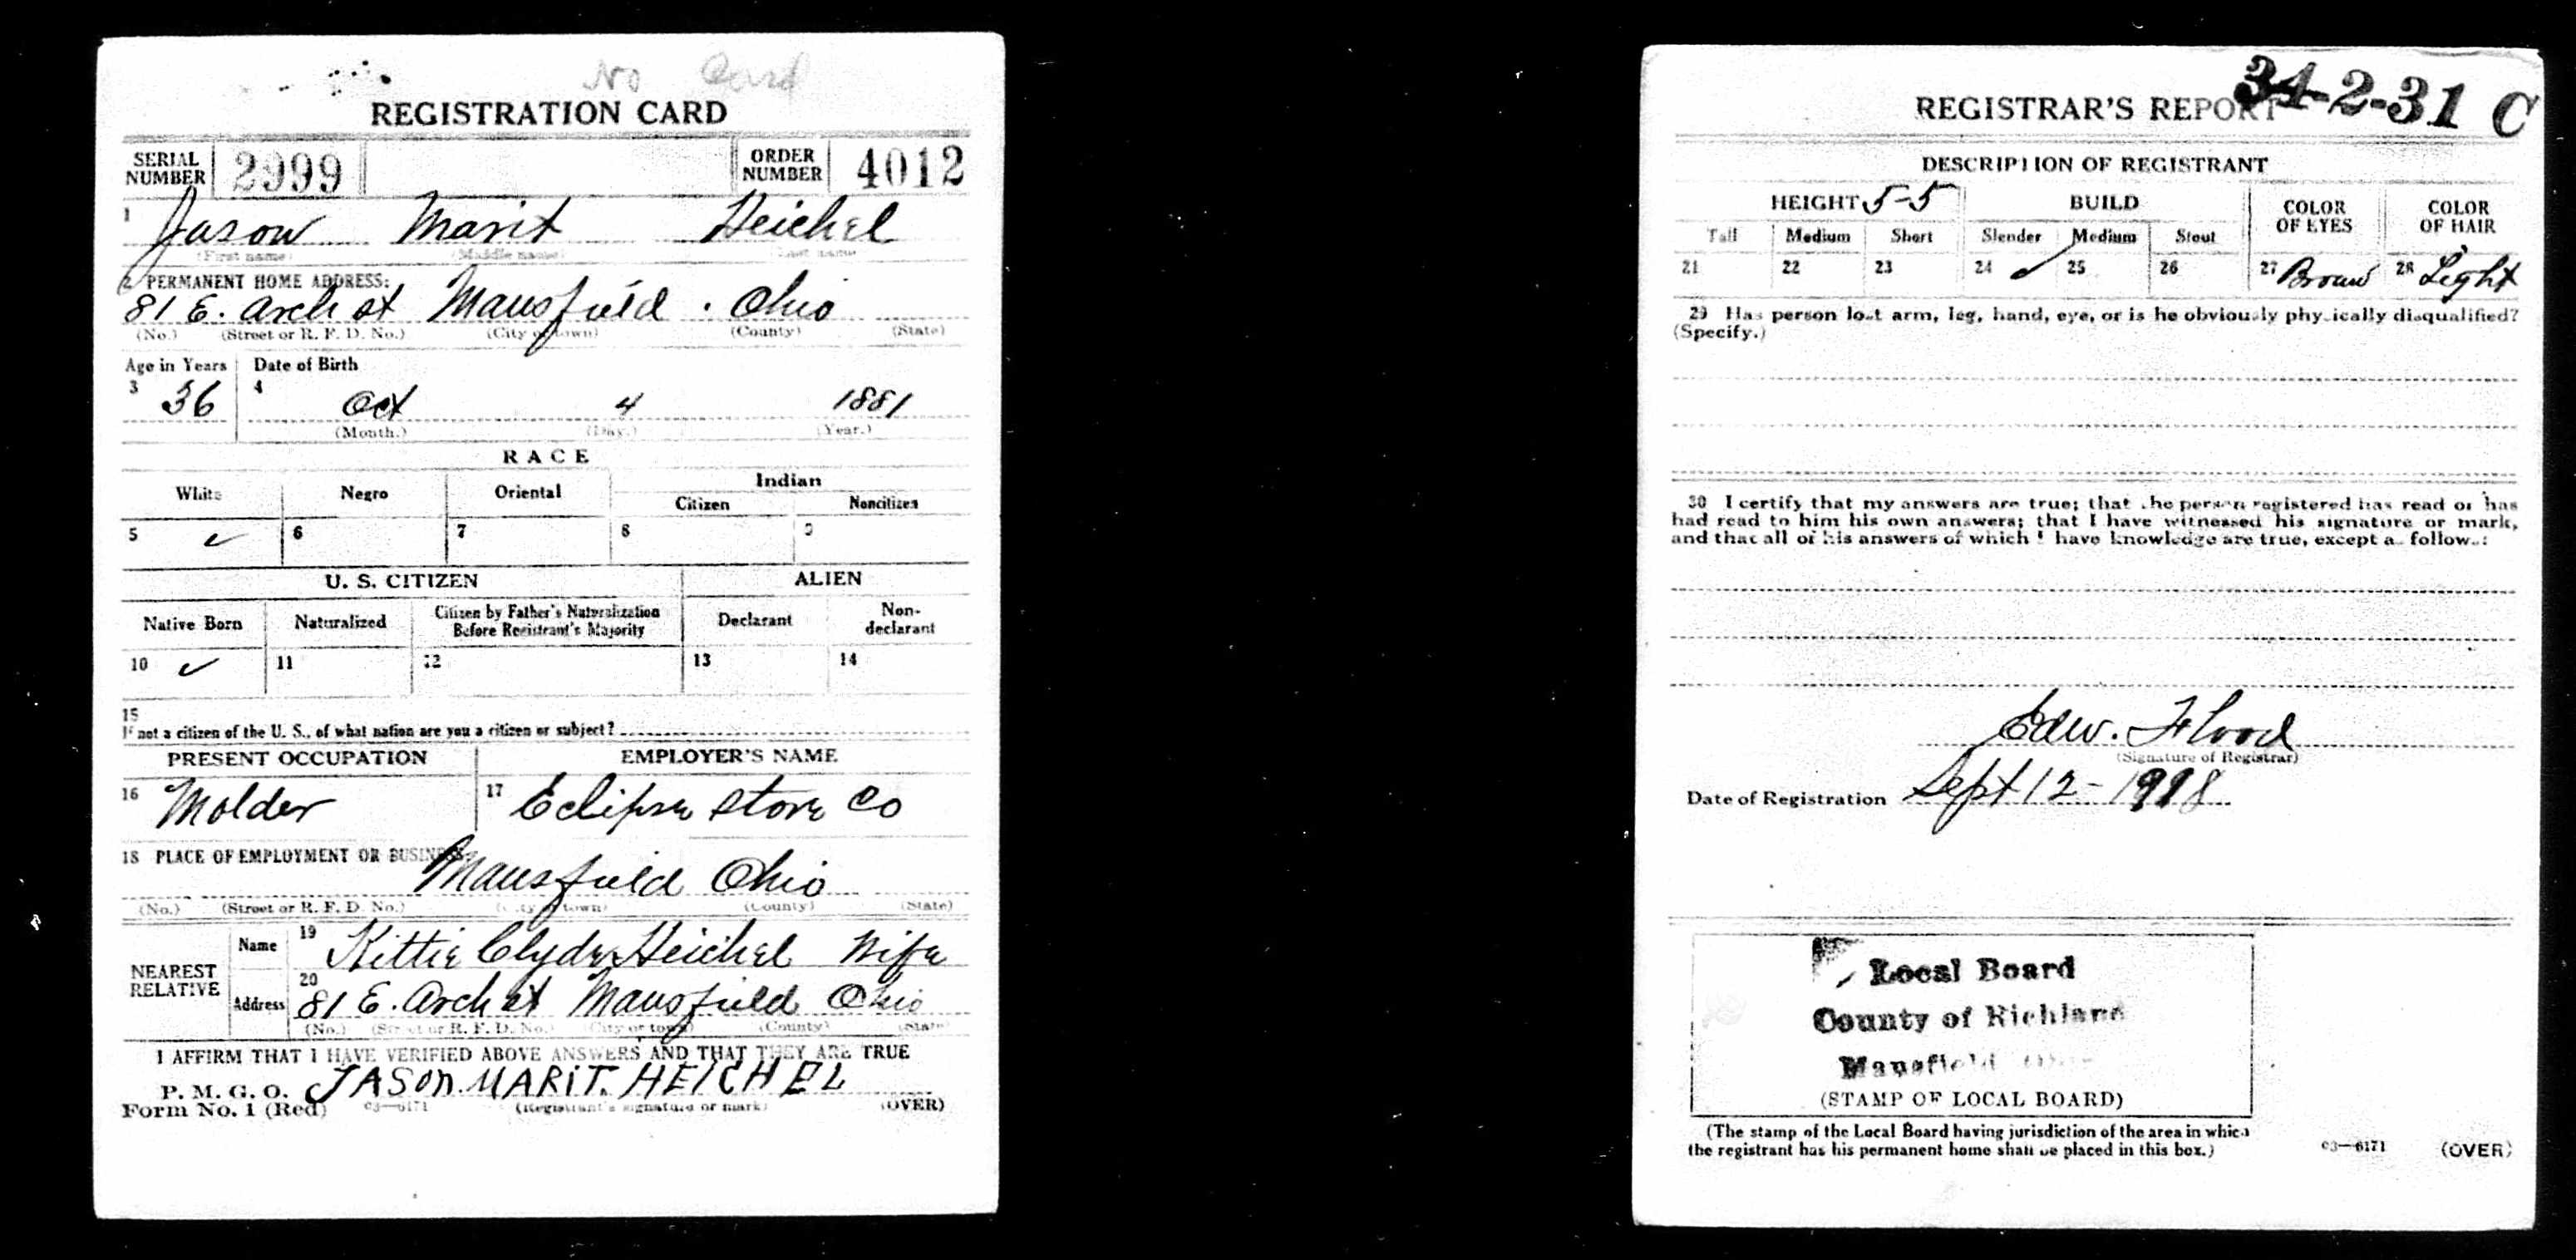 No Card
REGISTRATION CARD
SERIAL NUMBER 2999 ORDER NUMBER 4012
1 Jason Marit Heichel
(First name) (Middle name) (Last name)
2 PERMANENT HOME ADDRESS:
81 E. Arch st Mansfield . Ohio
(No.) (Street or R. F. D. No.) (City or town) (County) (State)
Age in Years Date of Birth
3 36 4 Oct 4 1881
(Month.) (Day.) (Year.)
RACE
White Negro Oriental Indian
Citizen Noncitizen
5 ✓ 6 7 8 9
U. S. CITIZEN ALIEN
Native Born Naturalized Citizen by Father's Naturalization Before Registrant's Majority Declarant Non-declarant
10 ✓ 11 12 13 14
15
If not a citizen of the U. S., of what nation are you a citizen or subject?
PRESENT OCCUPATION EMPLOYER'S NAME
16 Molder 17 Eclipse Stove Co
18 PLACE OF EMPLOYMENT OR BUSINESS:
Mansfield Ohio
(No.) (Street or R. F. D. No.) (City or town) (County) (State)
NEAREST RELATIVE Name 19 Kittie Clyde Heichel Wife
Address 20 81 E. Arch st Mansfield Ohio
(No.) (Street or R. F. D. No.) (City or town) (County) (State)
I AFFIRM THAT I HAVE VERIFIED ABOVE ANSWERS AND THAT THEY ARE TRUE
P. M. G. O. JASON. MARIT. HEICHEL
Form No. 1 (Red) 03—6171 (Registrant's signature or mark) (OVER)
34-2-31 C
REGISTRAR'S REPORT
DESCRIPTION OF REGISTRANT
HEIGHT 5-5 BUILD COLOR OF EYES COLOR OF HAIR
Tall Medium Short Slender Medium Stout
21 22 23 24 ✓ 25 26 27 Brown 28 Light
29 Has person lost arm, leg, hand, eye, or is he obviously physically disqualified?
(Specify.)
30 I certify that my answers are true; that the person registered has read or has
had read to him his own answers; that I have witnessed his signature or mark,
and that all of his answers of which I have knowledge are true, except as follows:
Edw. Flood
(Signature of Registrar)
Date of Registration Sept 12-1918
Local Board
County of Richland
Mansfield Ohio
(STAMP OF LOCAL BOARD)
(The stamp of the Local Board having jurisdiction of the area in which
the registrant has his permanent home shall be placed in this box.)
03—6171 (OVER)